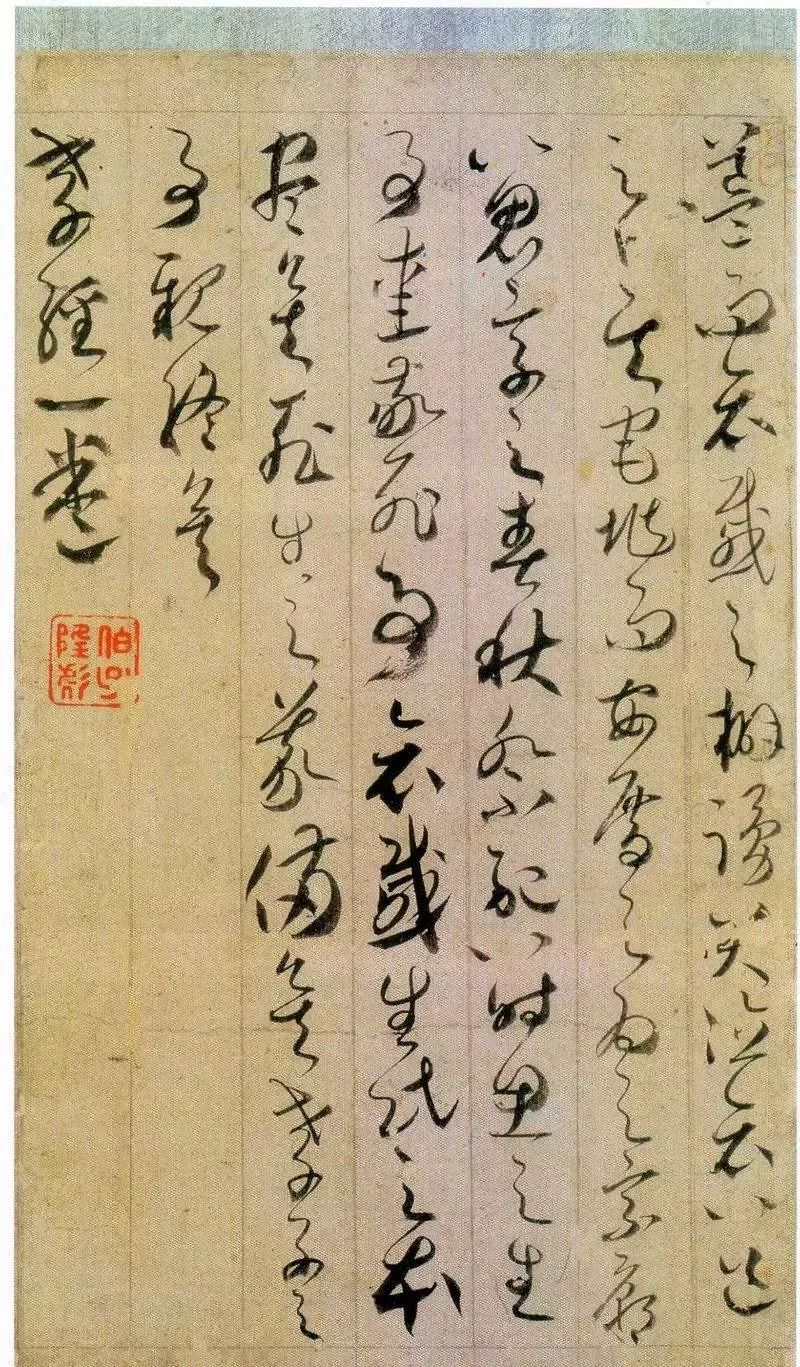 簋而哀慼之擗踊哭泣哀以送
之卜其宅兆而安厝之為之宗廟
以鬼享之春秋祭祀以時思之生
事愛敬死事哀慼生民之本
盡矣死生之義備矣孝子之
事親終矣
孝經一卷